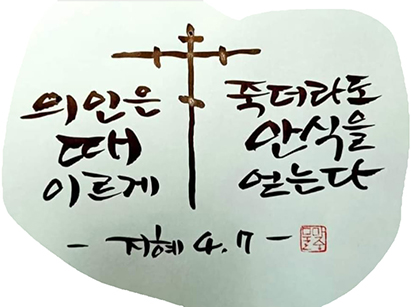 의인은
때
이르게
죽더라도
안식을
얻는다
- 지혜 4.7 -